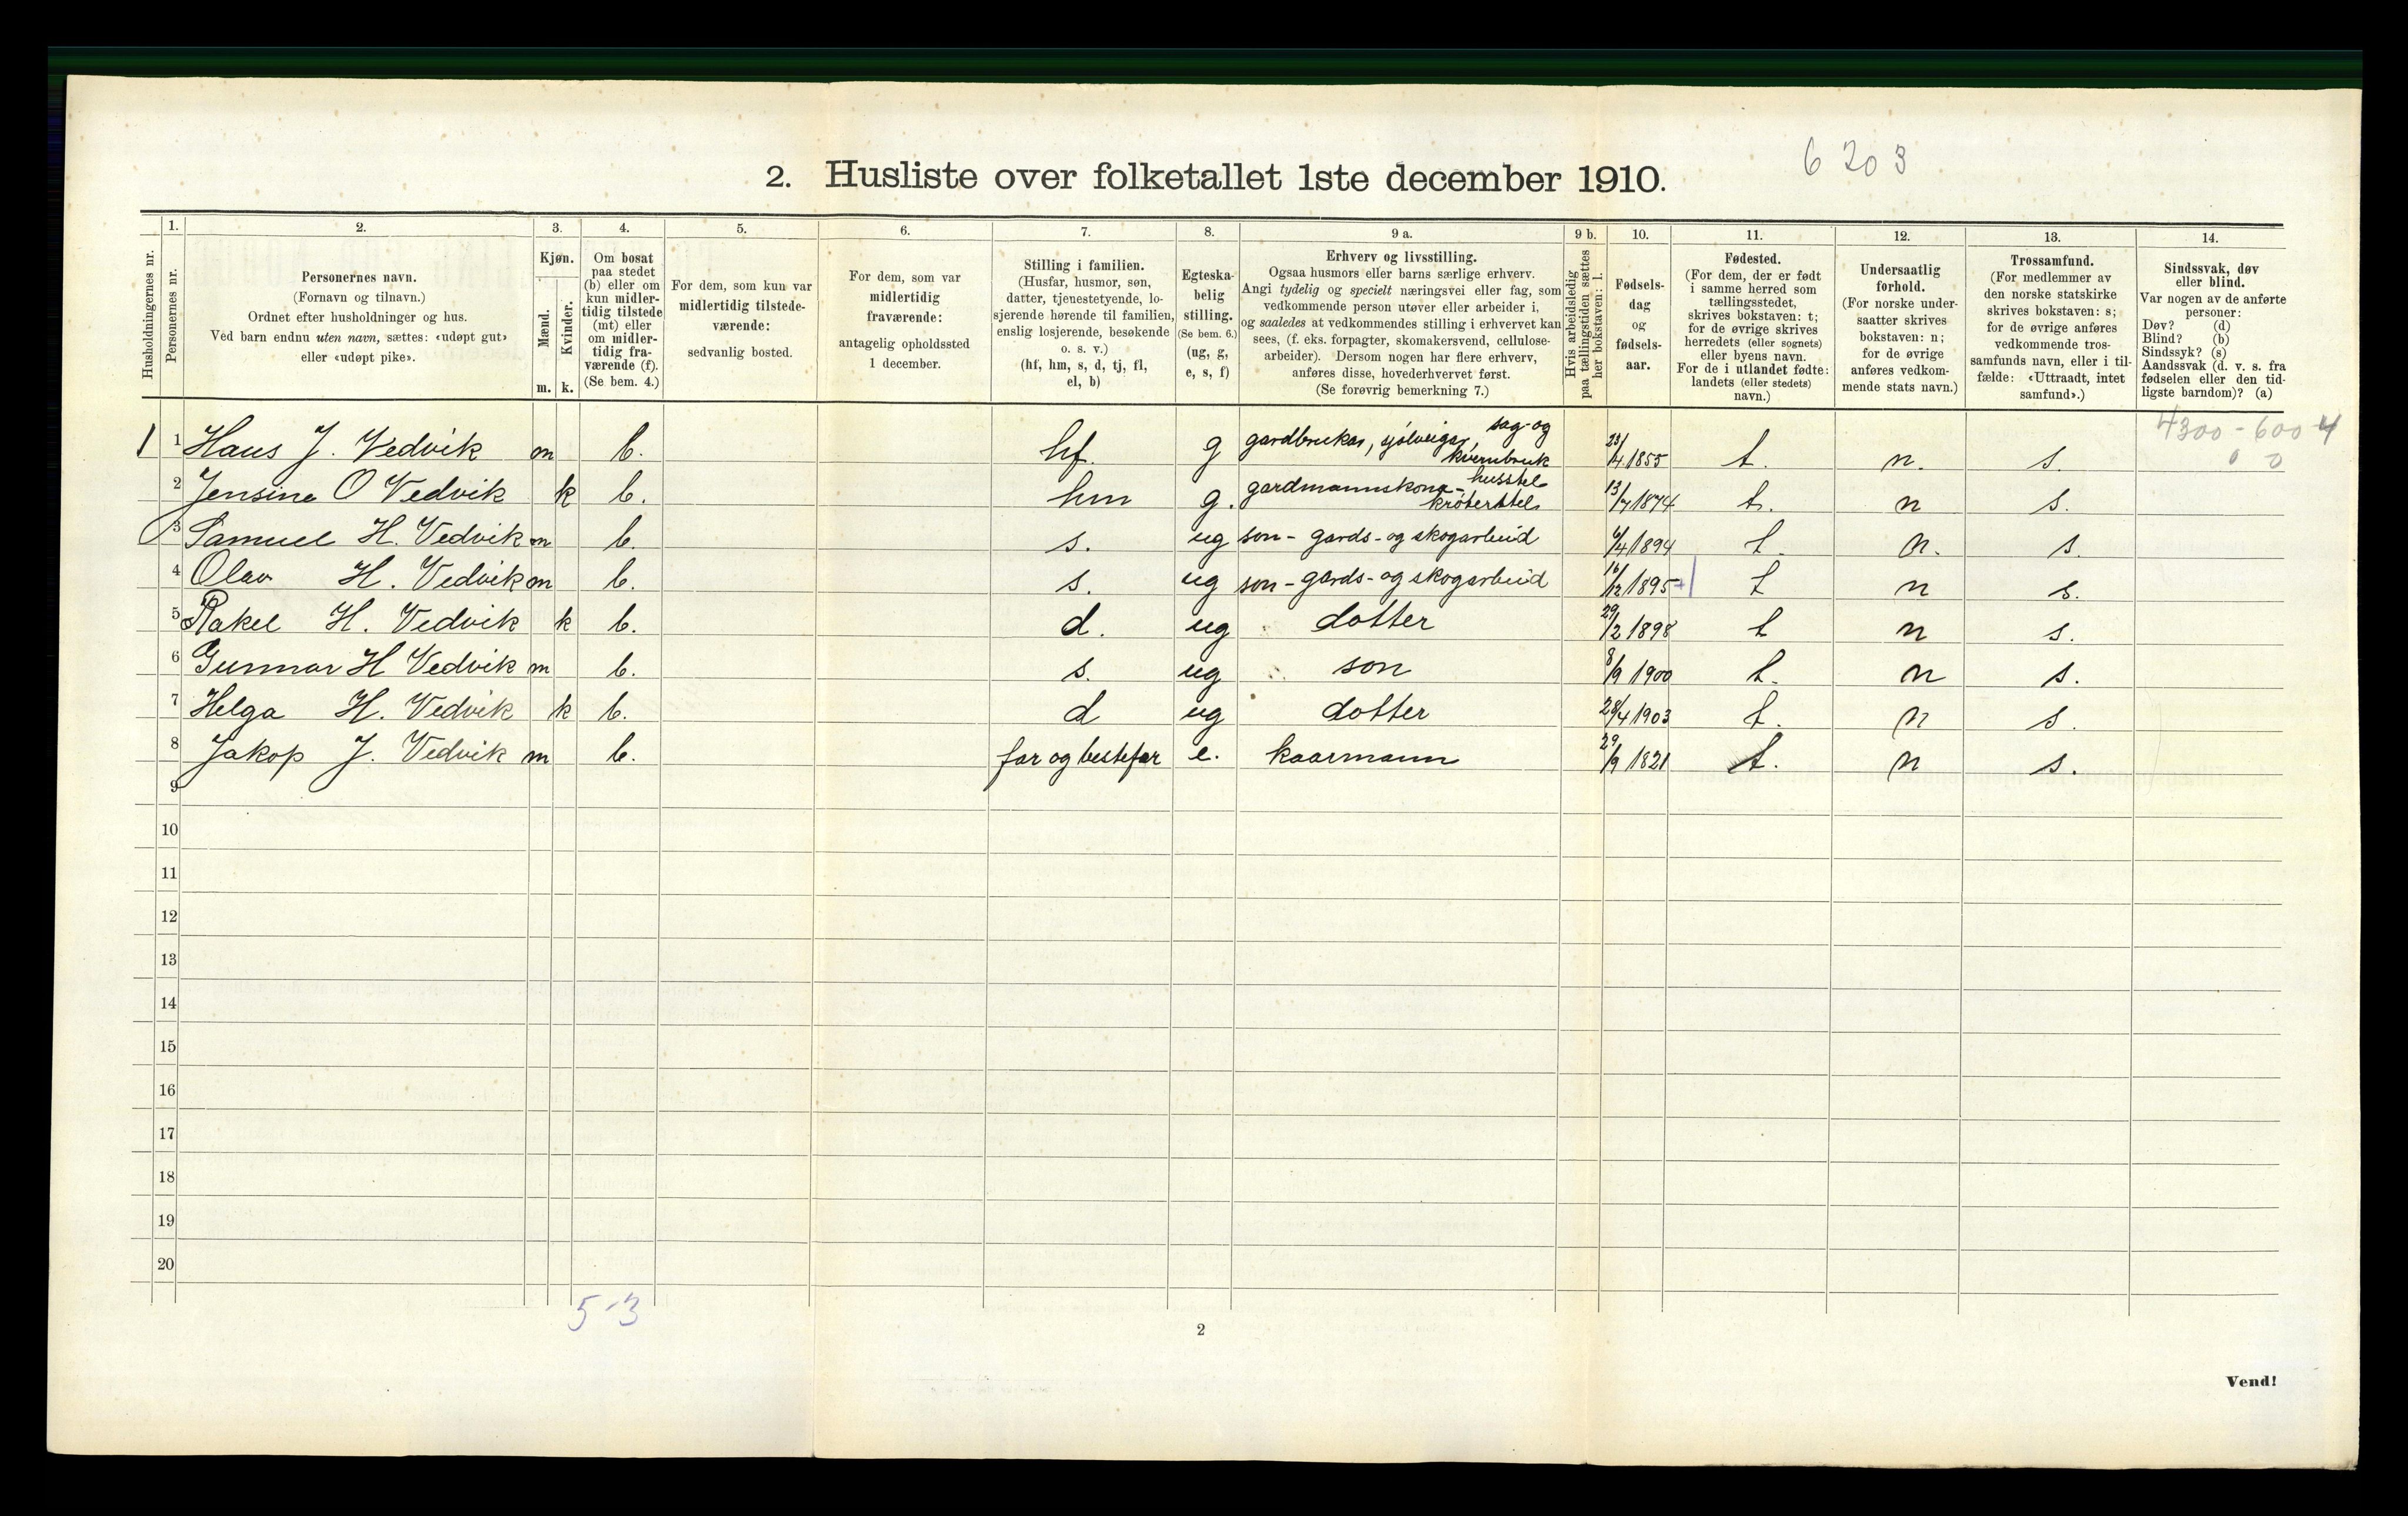 6 20 3
2. Husliste over folketallet 1ste december 1910.
Husholdningernes nr.
1.
Personernes nr.
2.
Personernes navn.
(Fornavn og tilnavn.)
Ordnet efter husholdninger og hus.
Ved barn endnu uten navn, sættes: «udøpt gut»
eller «udøpt pike».
3.
Kjøn.
Mænd.
Kvinder.
m. k.
4.
Om bosat
paa stedet
(b) eller om
kun midler-
tidig tilstede
(mt) eller
om midler-
tidig fra-
værende (f).
(Se bem. 4.)
5.
For dem, som kun var
midlertidig tilstede-
værende:
sedvanlig bosted.
6.
For dem, som var
midlertidig
fraværende:
antagelig opholdssted
1 december.
7.
Stilling i familien.
(Husfar, husmor, søn,
datter, tjenestetyende, lo-
sjerende hørende til familien,
enslig losjerende, besøkende
o. s. v.)
(hf, hm, s, d, tj, fl,
el, b)
8.
Egteska-
belig
stilling.
(Se bem. 6.)
(ug, g,
e, s, f)
9 a.
Erhverv og livsstilling.
Ogsaa husmors eller barns særlige erhverv.
Angi tydelig og specielt næringsvei eller fag, som
vedkommende person utøver eller arbeider i,
og saaledes at vedkommendes stilling i erhvervet kan
sees, (f. eks. forpagter, skomakersvend, cellulose-
arbeider). Dersom nogen har flere erhverv,
anføres disse, hovederhvervet først.
(Se forøvrig bemerkning 7.)
9 b.
Hvis arbeidsledig
paa tællingstiden sættes
her bokstaven: l.
10.
Fødsels-
dag
og
fødsels-
aar.
11.
Fødested.
(For dem, der er født
i samme herred som
tællingsstedet,
skrives bokstaven: t;
for de øvrige skrives
herredets (eller sognets)
eller byens navn.
For de i utlandet fødte:
landets (eller stedets)
navn.)
12.
Undersaatlig
forhold.
(For norske under-
saatter skrives
bokstaven: n;
for de øvrige
anføres vedkom-
mende stats navn.)
13.
Trossamfund.
(For medlemmer av
den norske statskirke
skrives bokstaven: s;
for de øvrige anføres
vedkommende tros-
samfunds navn, eller i til-
fælde: «Uttraadt, intet
samfund».)
14.
Sindssvak, døv
eller blind.
Var nogen av de anførte
personer:
Døv? (d)
Blind? (b)
Sindssyk? (s)
Aandssvak (d. v. s. fra
fødselen eller den tid-
ligste barndom)? (a)
4300 - 600 4
0 0
1 1 Hans J. Vedvik m b. hf. g gardbrukar, sjølveigar, sag- og kvernbruk 23/4 1855 t. n. s.
2 Jensine O Vedvik k b. hm g. gardmannskona - husstel krøterstel 13/7 1874 t. n s.
3 Samuel H. Vedvik m b. s. ug son - gards- og skogarbeid 6/4 1894 t. n. s.
4 Olav H. Vedvik m b. s. ug son - gards- og skogarbeid 16/12 1895 t n s.
5 Rakel H. Vedvik k b. d. ug dotter 29/2 1898 t n s.
6 Gunnar H Vedvik m b. s. ug son 8/9 1900 t. n s.
7 Helga H. Vedvik k b. d ug dotter 28/4 1903 t. n s.
8 Jakop J. Vedvik m b. far og bestefar e. kaarmann 29/9 1821 t. n s.
9
10
11
12
13
14
15
16
17
18
19
20
5-3
2
Vend!